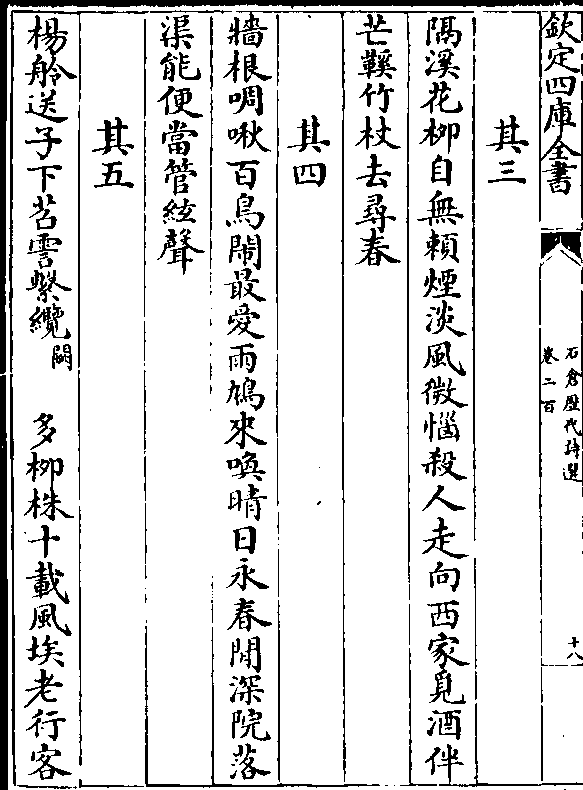 欽定四庫全書
石倉歴代詩選
卷二百
十八
其三
隔溪花柳自無賴煙淡風微惱殺人走向西家覓酒伴
芒鞵竹杖去尋春
其四
牆根啁啾百鳥閙最愛雨鳩來喚晴日永春閒深院落
渠能便當管絃聲
其五
楊舲送子下苕霅繫纜闕　多栁株十載風埃老行客